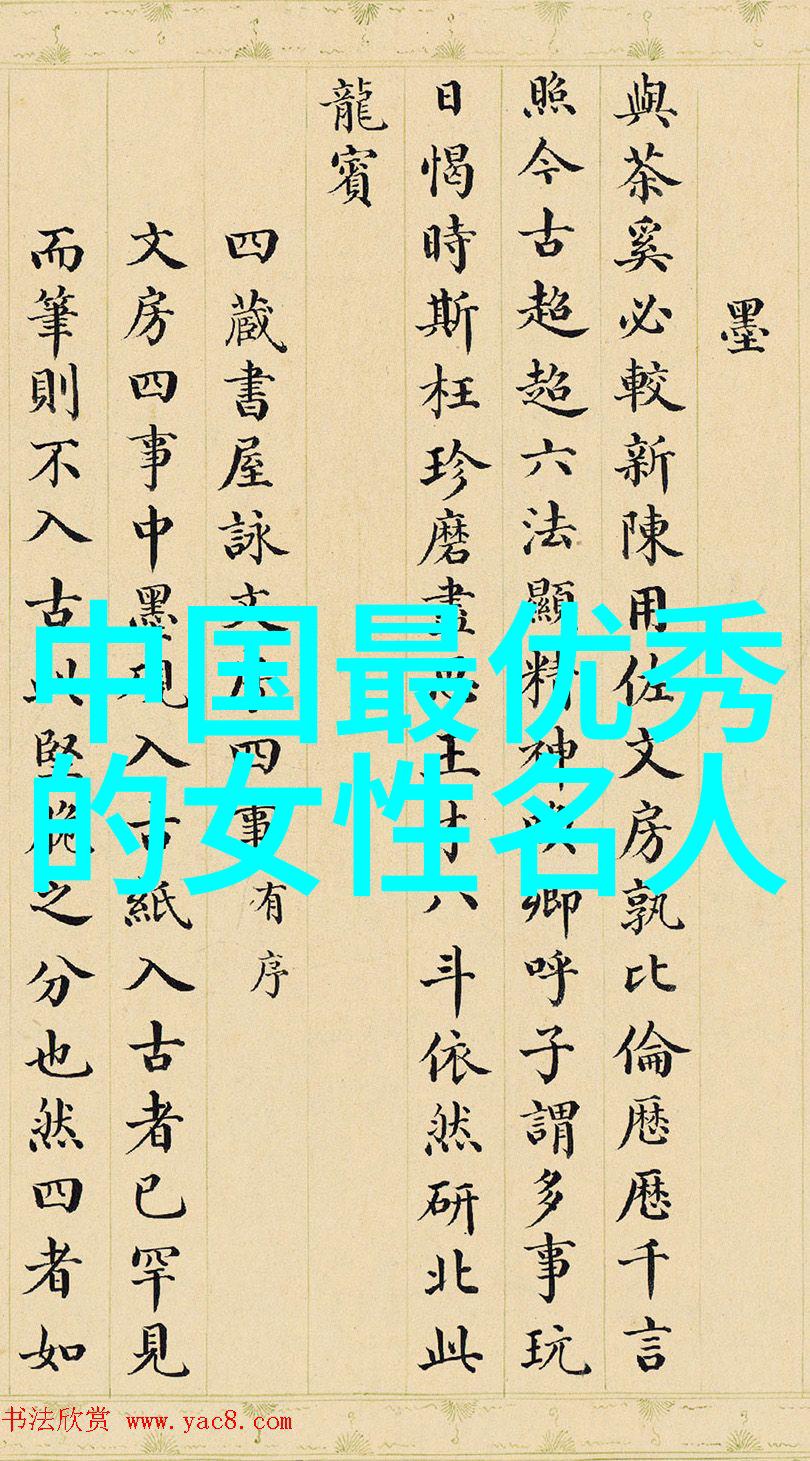 墨
與茶奚必較新陳用佐文房孰比倫歷歷千言
照今古超超六法顯精神 卿呼子謂多事玩
日愒時斯枉珍磨盡 王 八斗依然研北此
龍賓
四蔵書屋詠文房四事有序
文房四事中墨硯入古紙入古者已罕見
而筆則不入古此堅脆之分也然四者如
中国最优秀
的女性名人
书法欣赏 www.yac8.com